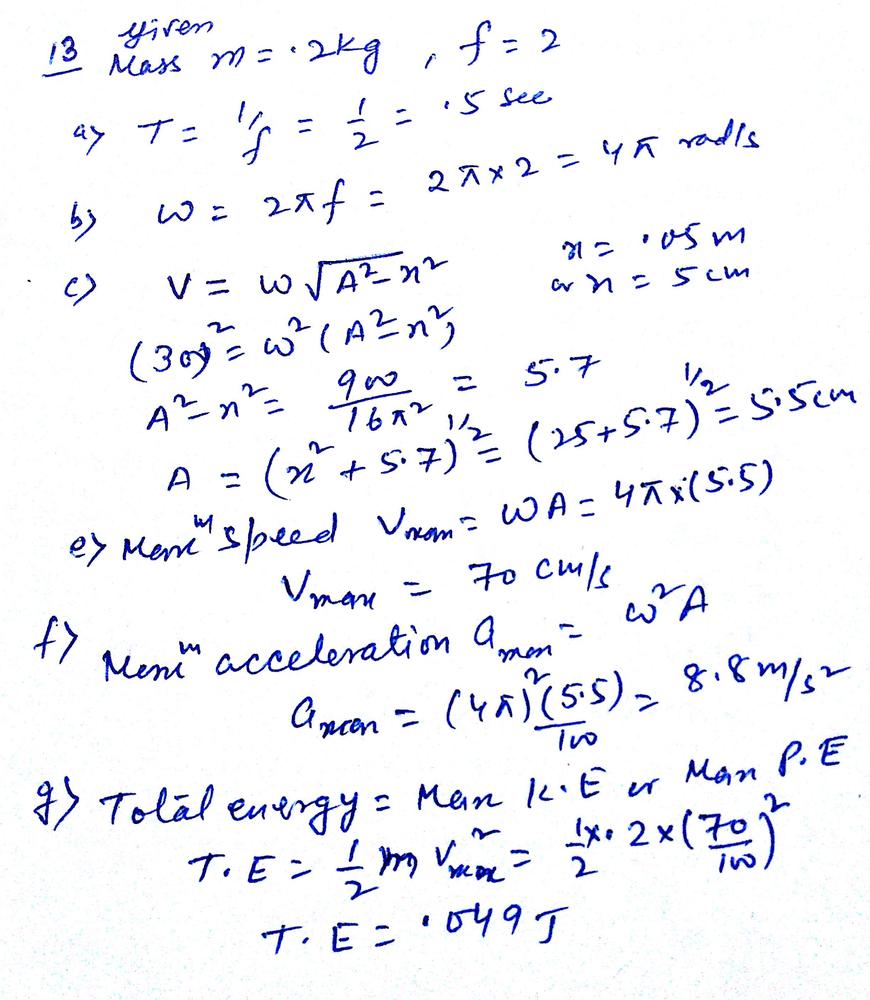 13 Given
Mass m = .2kg , f = 2
a) T = 1/f = 1/2 = .5 sec
b) ω = 2πf = 2π×2 = 4π rad/s
c) V = ω√A²-x² x = .05m
or x = 5cm
(30)² = ω²(A²-x²)
A²-x² = 900/16π² = 5.7
A = (x²+5.7)^1/2 = (25+5.7)^1/2 = 5.5cm
e) Maxi^m speed Vmax = ωA = 4π×(5.5)
Vmax = 70 cm/s
f) Maxi^m acceleration amax = ω²A
amax = (4π)²(5.5)/100 = 8.8m/s²
g) Total energy = Max K.E or Max P.E
T.E = 1/2 m Vmax² = 1/2×.2×(70/100)²
T.E = .049 J